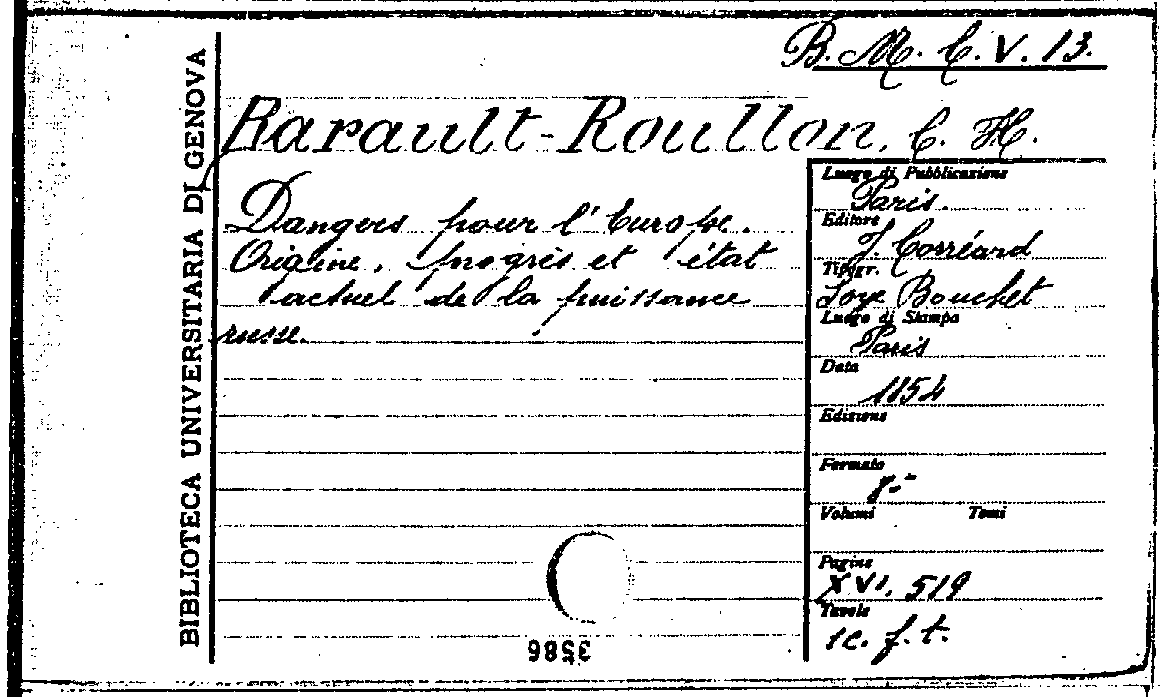 B. M. C. V. 13.
BIBLIOTECA UNIVERSITARIA DI GENOVA
Barault-Roullon, C. H.
Dangers pour l'Europe.
Origine, progrès et état
actuel de la puissance
russe.
Luogo di Pubblicazione
Paris.
Editore
J. Corréard
Tipogr.
Loye Bouchet
Luogo di Stampa
Paris
Data
1854
Edizione
Formato
8.°
Volumi Tomi
Pagine
XVI, 519
Tavole
1 c. f. t.
3586